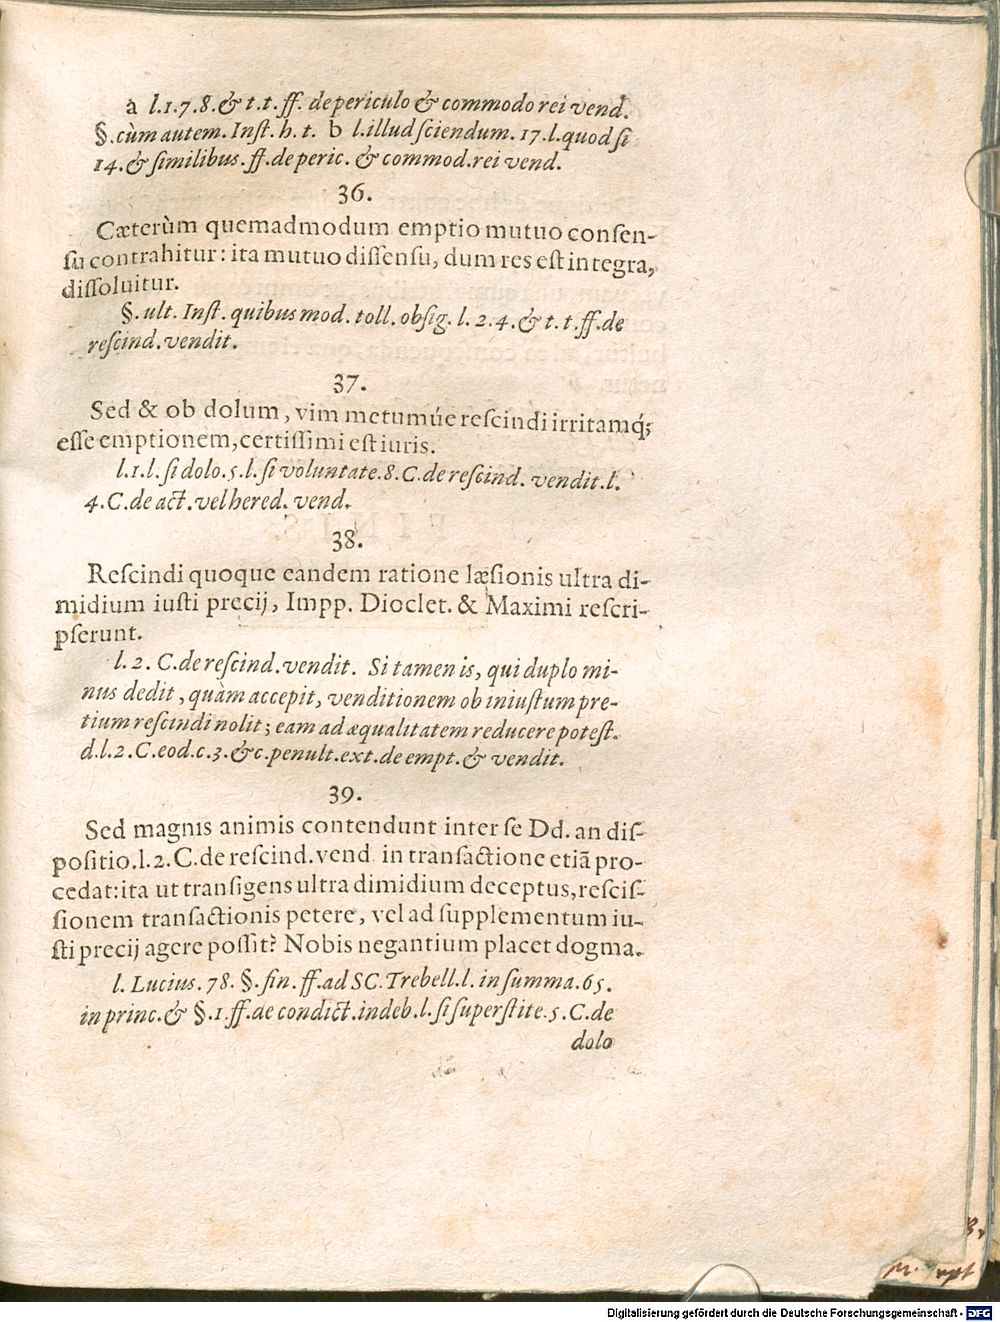 a l.1.7.8.& t.t.ff. de periculo & commodo rei vend.
§.cùm autem. Inſt. h. t. b l.illud ſciendum. 17.l.quod ſi
14.& ſimilibus.ff.de peric. & commod.rei vend.
36.
Cæterùm quemadmodum emptio mutuo conſen-
ſu contrahitur: ita mutuo diſſenſu, dum res eſt integra,
diſſoluitur.
§. ult. Inſt. quibus mod. toll. obſig. l. 2.4.& t.t.ff.de
reſcind.vendit.
37.
Sed & ob dolum, vim metumúe reſcindi irritamq́;
eſſe emptionem, certiſſimi eſt iuris.
l.1.l. ſi dolo.5.l. ſi voluntate.8.C.de reſcind. vendit.l.
4.C.de act.vel hered. vend.
38.
Reſcindi quoque eandem ratione læſionis ultra di-
midium iuſti precij, Impp. Dioclet. & Maximi reſcri-
pſerunt.
l.2. C.de reſcind.vendit. Si tamen is, qui duplo mi-
nus dedit, quàm accepit, venditionem ob iniuſtum pre-
tium reſcindi nolit; eam ad æqualitatem reducere poteſt.
d.l.2.C.eod.c.3.& c.penult.ext.de empt.& vendit.
39.
Sed magnis animis contendunt inter ſe Dd. an diſ-
poſitio.l.2.C.de reſcind.vend in tranſactione etiã pro-
cedat: ita ut tranſigens ultra dimidium deceptus, reſciſ-
ſionem tranſactionis petere, vel ad ſupplementum iu-
ſti precij agere poſſit? Nobis negantium placet dogma.
l. Lucius. 78. §. fin. ff.ad SC.Trebell.l. in ſumma.65.
in princ.& §.1.ff.de condict.indeb.l.ſi ſuperſtite.5.C.de
dolo
Digitalisierung gefördert durch die Deutsche Forschungsgemeinschaft - DFG